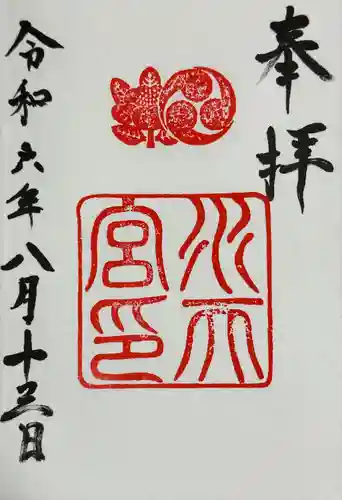 奉拝
水天宮印
令和六年八月十三日